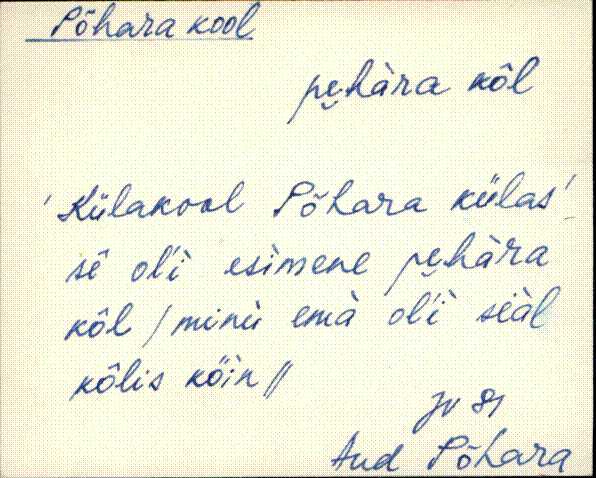 Põhara kool
pe̮hàra kôl
'Külakool Põhara külas'
sê ol'ì esìmene pe̮hàra
kôl / minù emà ol'ì siàl
kôlis kö̀in //
JV 81
Aud Põhara